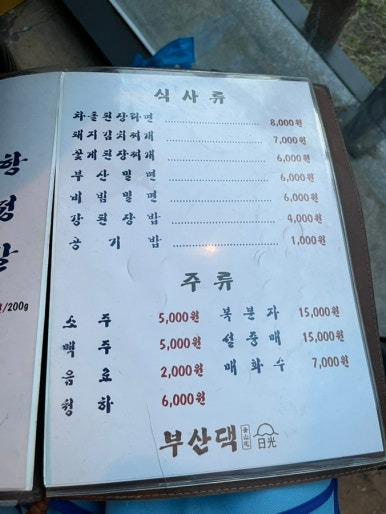 항
정
살
원/200g
식사류
차돌된장라면 8,000원
돼지김치찌개 7,000원
꽃게된장찌개 6,000원
부산밀면 6,000원
비빔밀면 6,000원
강된장밥 4,000원
공기밥 1,000원
주류
소주 5,000원
맥주 5,000원
음료 2,000원
청하 6,000원
복분자 15,000원
설중매 15,000원
매화수 7,000원
부산댁
日光